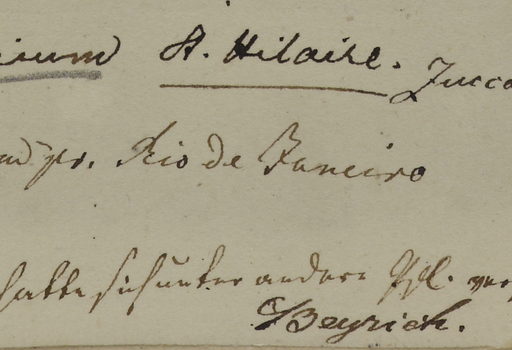 St. Hilaire. Zucca
pr. Rio de Janeiro
hatte sich unter andere Pfl.
C Beyrich.